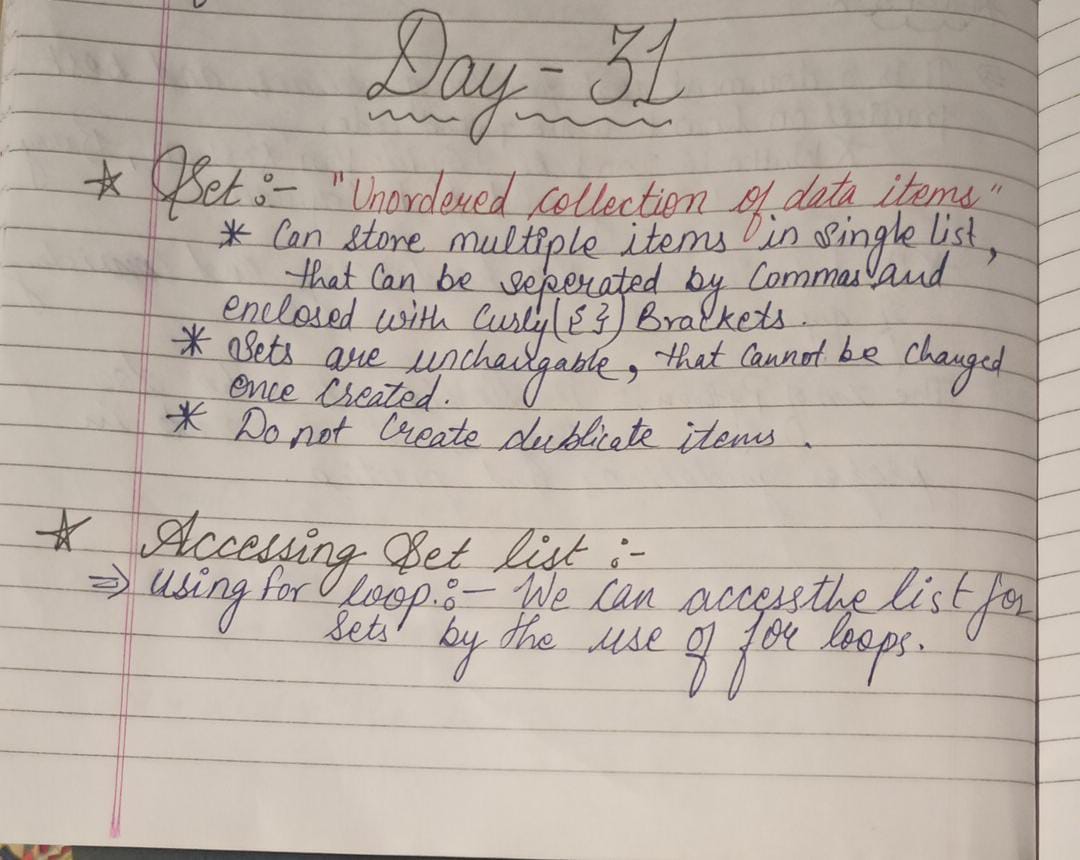 Day - 31
* Set :- "Unordered collection of data items"
* Can store multiple items in single list,
that can be seperated by Commas and
enclosed with Curly({}) Brackets.
* Sets are unchangable, that cannot be changed
once created.
* Do not create dublicate items.
* Accessing Set list :-
⇒ using for loop.:- We can access the list for
sets by the use of for loops.